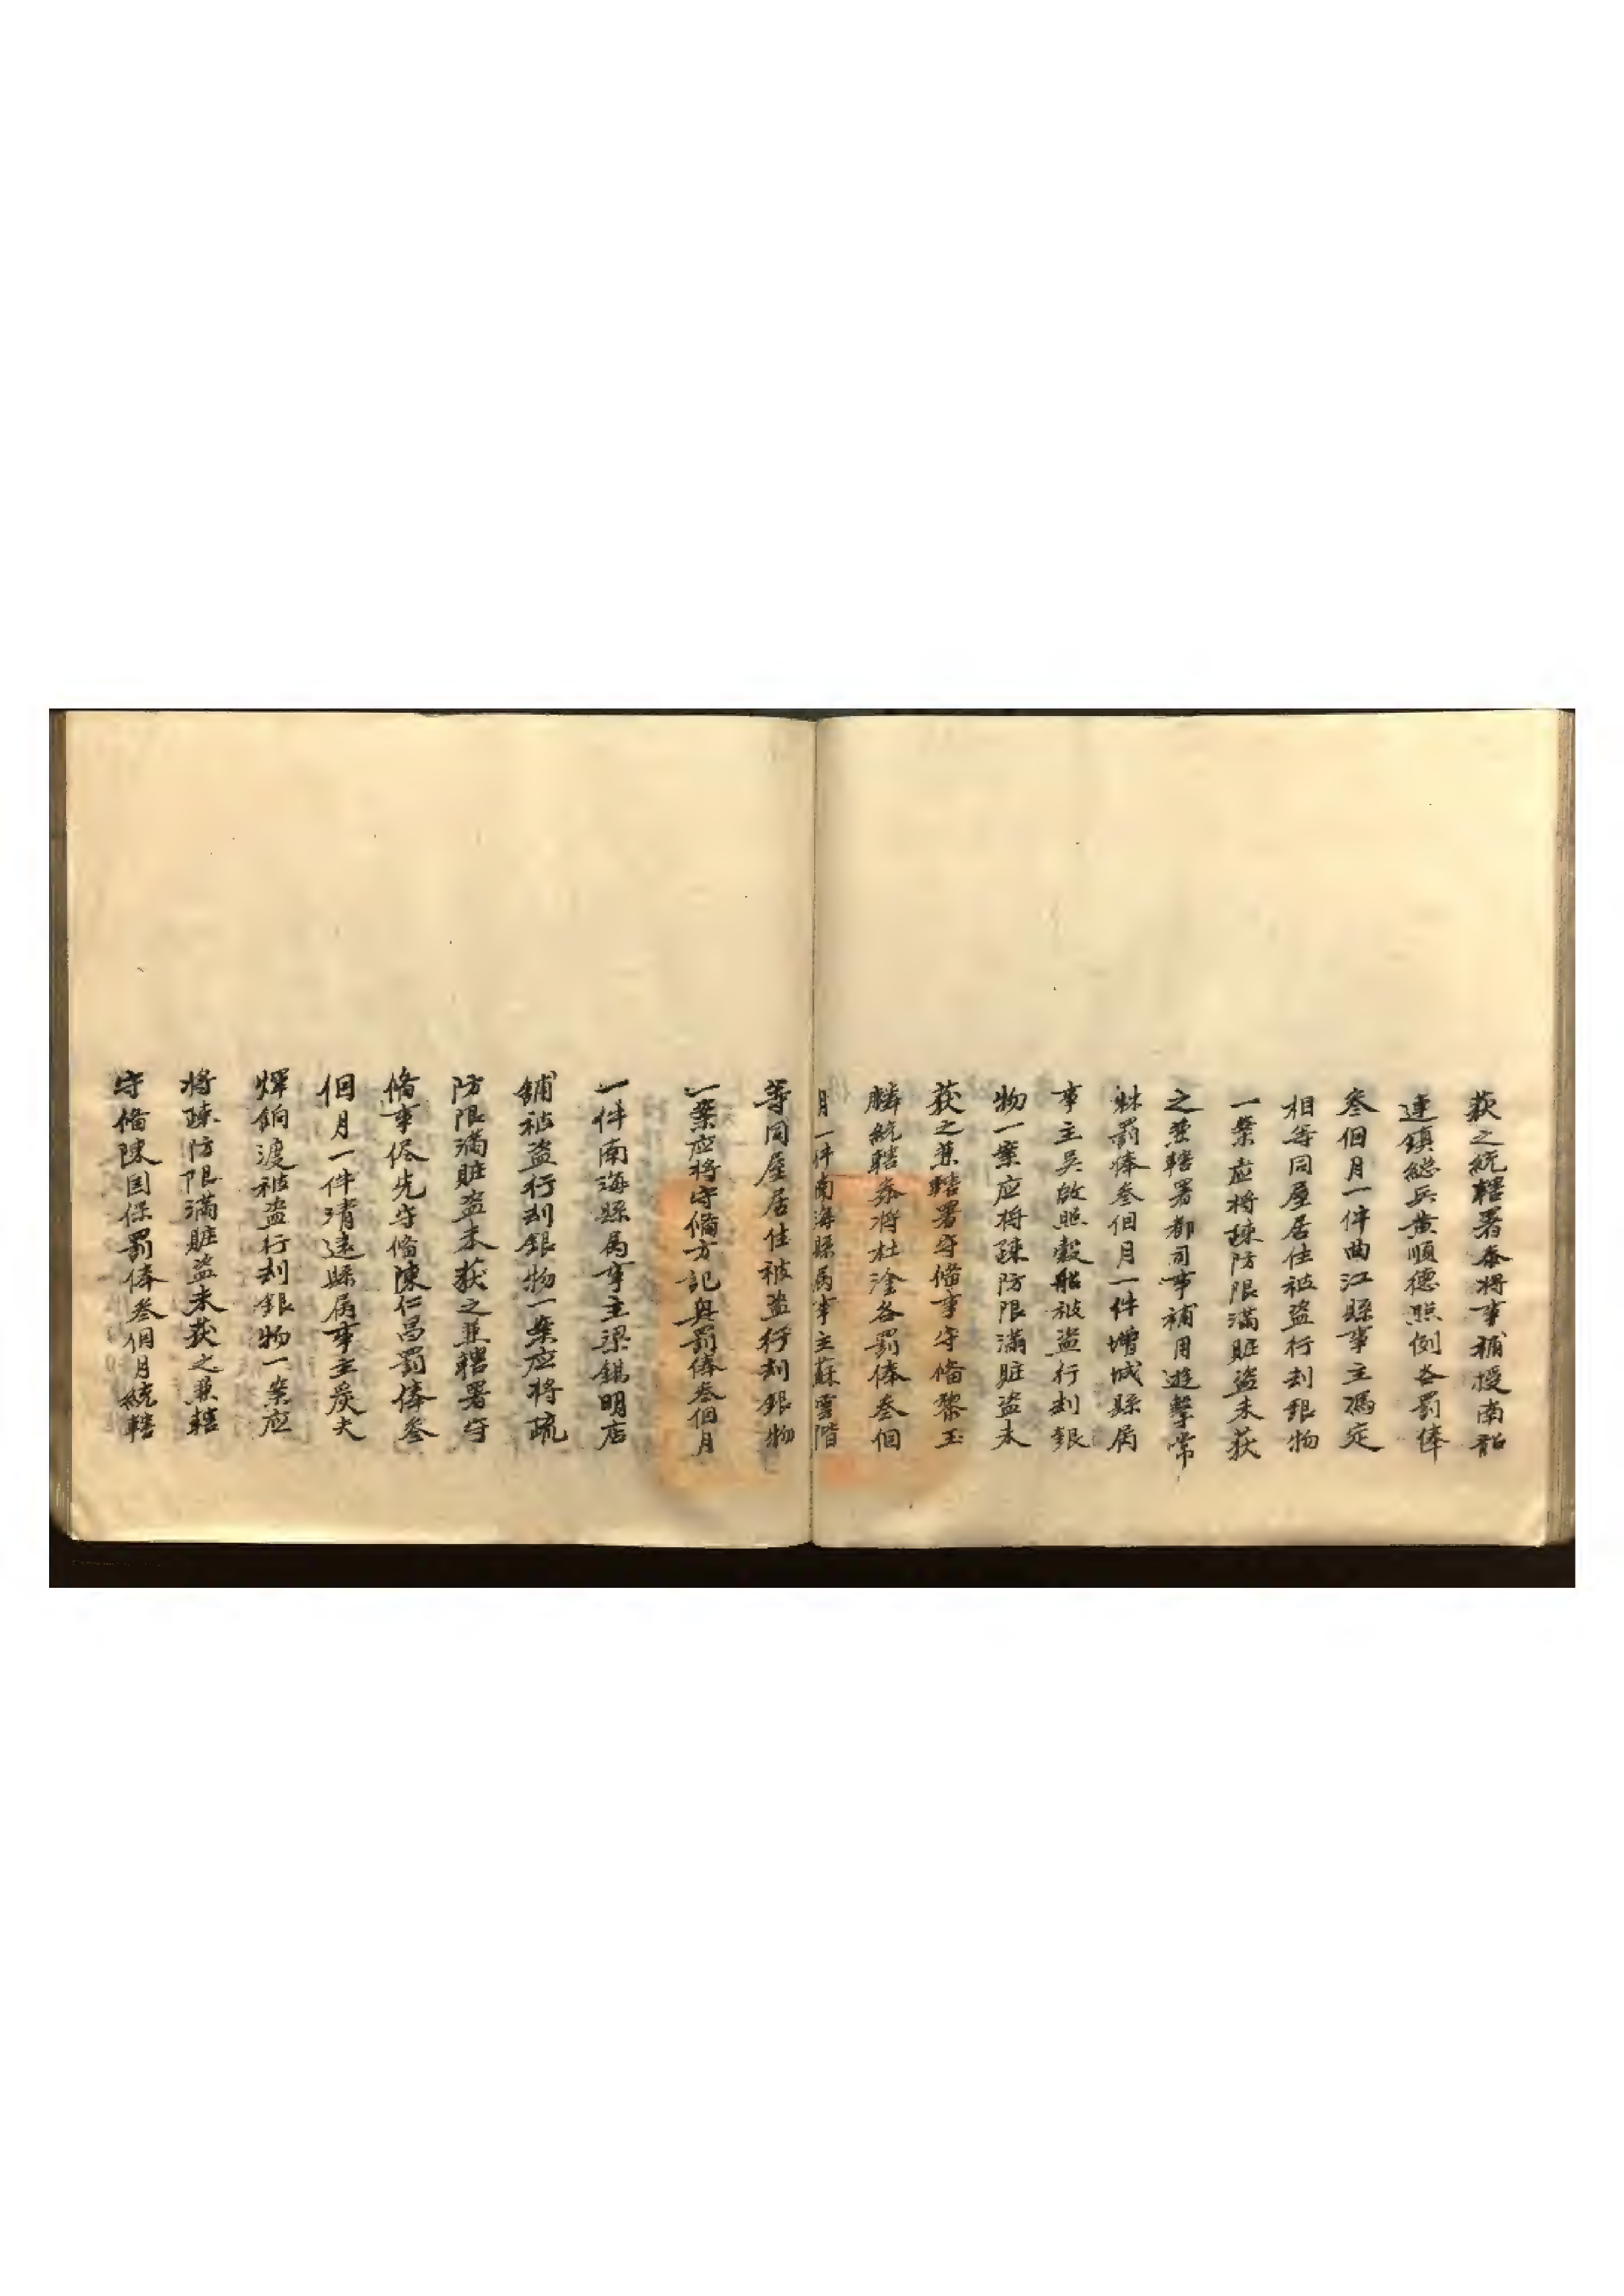 获之統轄署叅將事補授南韶
連鎮総兵黄順德照例各罰俸
叁個月一件曲江縣事主馮定
相等同屋居住被盗行刦銀物
一案应将疎防限滿賍盗未获
之兼轄署都司事補用遊擊常
罰俸叁個月一件增城縣属
事主吳啟照穀船被盗行刦銀
物一案应将疎防限滿賍盗未
获之兼轄署守俻事守俻黎玉
麟統轄叅将杜淦各罰俸叁個
月一件南海縣属事主蘇雲階
等同屋居住被盗行刦銀物
一案应将守俻方記興罰俸叁個月
一件南海縣属事主梁錫明店
舖被盗行刦銀物一案应将疏
防限滿賍盗未获之兼轄署守
俻事侭先守俻陳仁昌罰俸叁
個月一件清遠縣属事主炭夫
輝餉渡被盗行刦銀物一案应
将疎防限滿賍盗未获之兼轄
守俻陳国保罰俸叁個月統轄